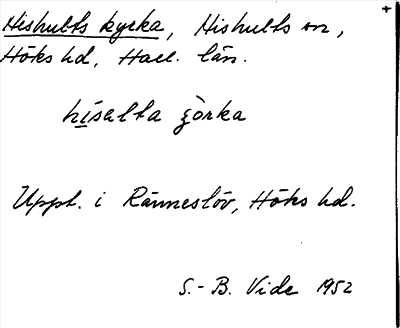 Hishults kyrka, Hishults sn,
Höks hd, Hall. län.
hísalta ʒòrka
Uppt. i Ränneslöv, Höks hd.
S.-B. Vide 1952